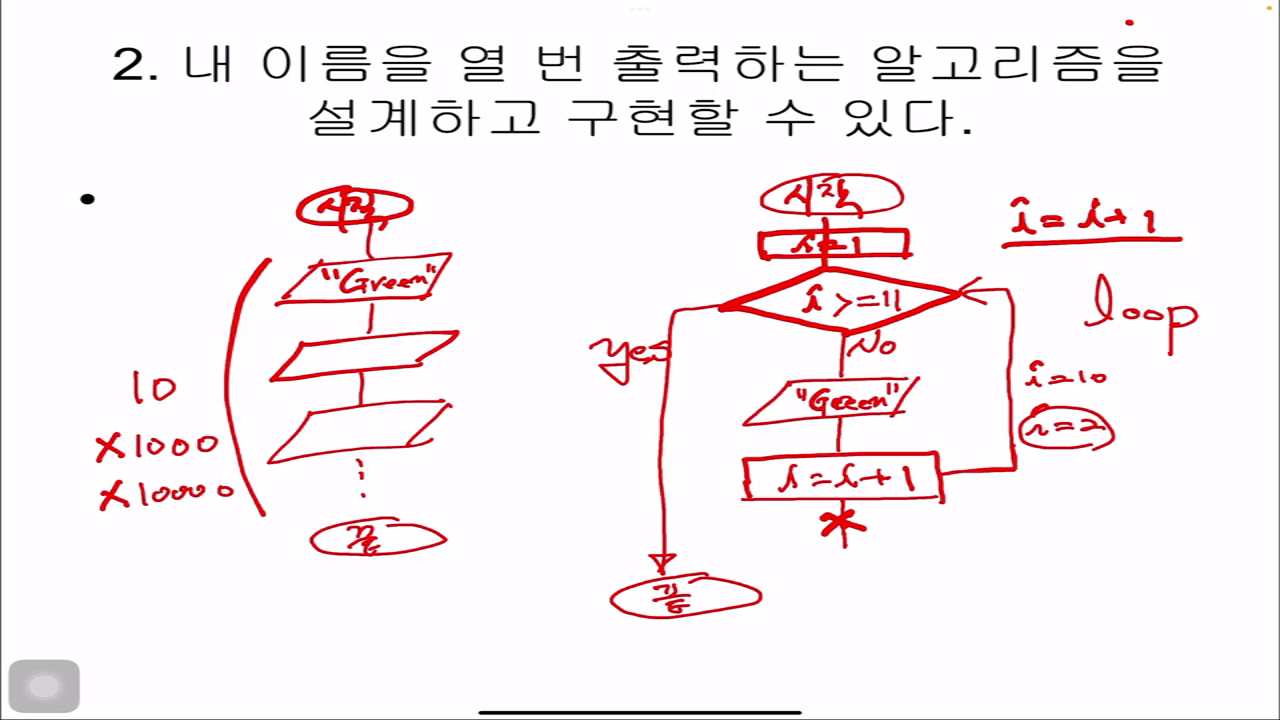 2. 내 이름을 열 번 출력하는 알고리즘을
설계하고 구현할 수 있다.
시작
"Green"
10
×1000
×10000
끝
시작
i=1
i>=11
Yes
No
"Green"
i=i+1
끝
i=i+1
loop
i=10
i=2